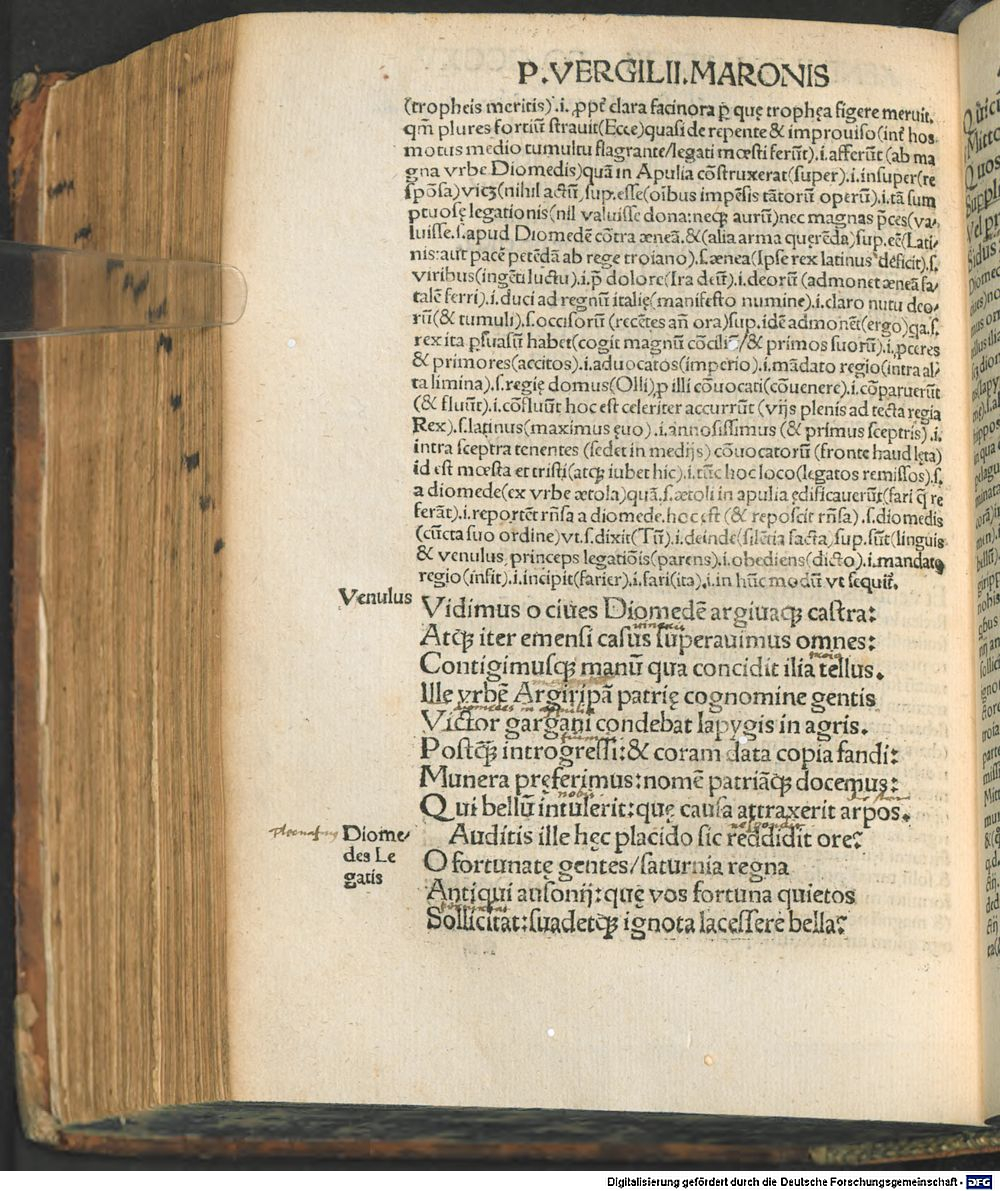 P.VERGILII.MARONIS
(tropheis meritis).i. ꝓpt̃ clara facinora ꝑ quę trophęa figere meruit.
qm̃ plures fortiũ strauit(Ecce)quasi de repente & improuiso(int̃ hos
motus medio tumultu flagrante/legati mœsti ferũt).i.afferũt (ab ma
gna vrbe Diomedis)quã in Apulia cõstruxerat(super).i.insuper(re
spõsa)vicꝫ(nihil actũ,sup.esse(oĩbus impẽsis tãtorũ operũ).i.tã sum
ptuosę legationis(nil valuisse dona:necꝫ aurũ)nec magnas p̃ces(va/
luisse.s.apud Diomedẽ cõtra æneã.&(alia arma querẽda)sup.eẽ(Lati/
nis:aut pacẽ petẽdã ab rege troiano).s.ænea(Ipse rex latinus deficit).s.
viribus(ingẽti luctu).i.p̃ dolore(Ira deũ).i.deorũ (admonet æneã fa/
talẽ ferri).i.duci ad regnũ italię(manifesto numine).i.claro nutu deo/
rũ(& tumuli).s.occisorũ (recẽtes añ ora)sup.idẽ admonẽt(ergo)qa.s.
rex ita ꝑsuasũ habet(cogit magnũ cõciliũ/& primos suorũ).i.ꝓceres
& primores(accitos).i.aduocatos(imperio).i.mãdato regio(intra al/
ta limina).s.regię domus(Olli)ꝓ illi cõuocati(cõuenere).i.cõparuerũt
(& fluũt).i.cõfluũt hoc est celeriter accurrũt (vijs plenis ad tecta regia
Rex).s.latinus(maximus ęuo).i.annosissimus (& primus sceptris).i.
intra sceptra tenentes (sedet in medijs) cõuocatorũ (fronte haud lęta)
id est mœsta et tristi(atcꝫ iubet hic).i.tũc hoc loco(legatos remissos).s.
a diomede(ex vrbe ætola)quã.s.ætoli in apulia ędificauerũt(fari q̃ re
ferãt).i.reportẽt rñsa a diomede.hoc est (& reposcit rñsa).s.diomedis
(cũcta suo ordine)vt.s.dixit(Tũ).i.deinde(silẽtia facta)sup.sũt(linguis
& venulus princeps legatiõis(parens).i.obediens(dicto).i.mandato
regio(infit).i.incipit(farier).i.fari(ita).i.in hũc modũ vt sequit̃.
Venulus
Vidimus o ciues Diomedẽ argiuacꝫ castra:
Atcꝫ iter emensi casus superauimus omnes:
Contigimuscꝫ manũ qua concidit ilia tellus.
Ille vrbẽ Argiripã patrię cognomine gentis
Victor gargani condebat Iapygis in agris.
Postcꝫ introgressi:& coram data copia fandi:
Munera pręferimus:nomẽ patriãcꝫ docemus:
Qui bellũ intulerit:quę causa attraxerit arpos.
Diome/
des Le
gatis
Auditis ille hęc placido sic reddidit ore:
O fortunatę gentes/saturnia regna
Antiqui ausonij:quę vos fortuna quietos
Sollicitat:suadetcꝫ ignota lacessere bella:
Digitalisierung gefördert durch die Deutsche Forschungsgemeinschaft - DFG